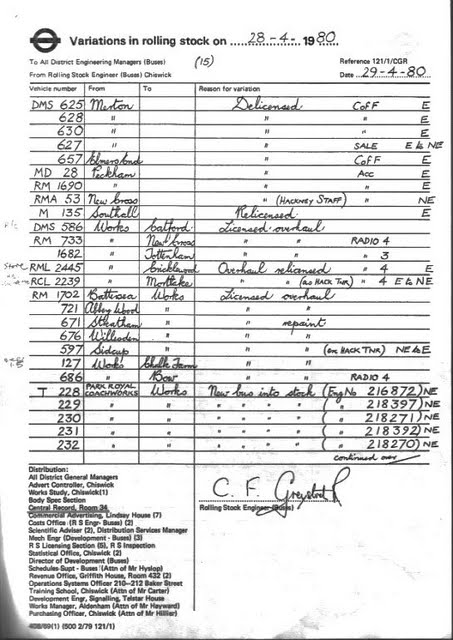 Variations in rolling stock on 28-4-1980
To All District Engineering Managers (Buses) (15) Reference 121/1/CGR
From Rolling Stock Engineer (Buses) Chiswick Date 29-4-80
Vehicle number From To Reason for variation
DMS 625 Merton Delicensed CofF E
628 " " " E
630 " " " E
627 " " SALE E to NE
657 Elmers End " CofF E
MD 28 Peckham " Acc E
RM 1690 " " " E
RMA 53 New Cross " (HACKNEY STAFF) " NE
M 135 Southall Relicensed E
DMS 586 Works Catford Licensed overhaul
RM 733 " New Cross " " RADIO 4
1682 " Tottenham " " " 3
RML 2445 " Cricklewood Overhaul relicensed " 4 E
RCL 2239 " Mortlake " " (as HACK TNR) " 4 E to NE
RM 1702 Battersea Works Licensed overhaul
721 Abbey Wood " " "
671 Streatham " " repaint
676 Willesden " " "
597 Sidcup " " " (ex HACK TNR) NE to E
127 Works Chalk Farm " "
686 " Bow " " RADIO 4
T 228 PARK ROYAL COACHWORKS Works New bus into stock (Eng No 216872) NE
229 " " " " " " ( " 218397) NE
230 " " " " " " ( " 218271) NE
231 " " " " " " ( " 218392) NE
232 " " " " " " ( " 218270) NE
continued over
Distribution:
All District General Managers
Advert Controller, Chiswick
Works Study, Chiswick(1)
Body Spec Section
Central Record, Room 34
Commercial Advertising, Lindsay House (7)
Costs Office (R S Engr- Buses) (2)
Scientific Adviser (2), Distribution Services Manager
Mech Engr (Development - Buses) (3)
R S Licensing Section (5), R S Inspection
Statistical Office, Chiswick (2)
Director of Development (Buses)
Schedules Supt - Buses (Attn of Mr Hyslop)
Revenue Office, Griffith House, Room 432 (2)
Operations Systems Officer 210-212 Baker Street
Training School, Chiswick (Attn of Mr Carter)
Development Engr, Signalling, Telstar House
Works Manager, Aldenham (Attn of Mr Hayward)
Purchasing Officer, Chiswick (Attn of Mr Hillier)
C. F.
Rolling Stock Engineer (Buses)
408/69(1) (500 2/79 121/1)